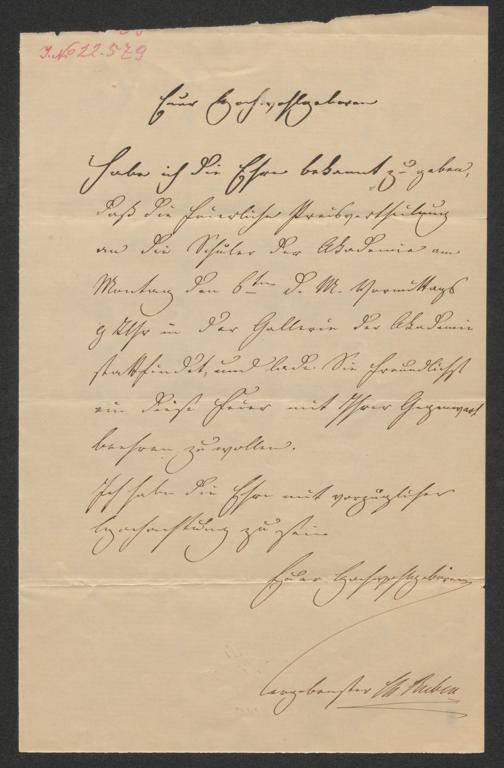 J. No 22.579
Euer Hochwohlgeboren
Habe ich die Ehre bekannt zu geben,
daß die feierliche Preisvertheilung
an die Schüler der Akademie am
Montag den 6ten d. M. Vormittags
9 Uhr in der Gallerie der Akademie
stattfindet, und lade Sie freundlichst
ein diese Feier mit Ihrer Gegenwart
beehren zu wollen.
Ich habe die Ehre mit vorzüglicher
Hochachtung zu sein
Euer Hochwohlgeboren
ergebenster Ch Ruben